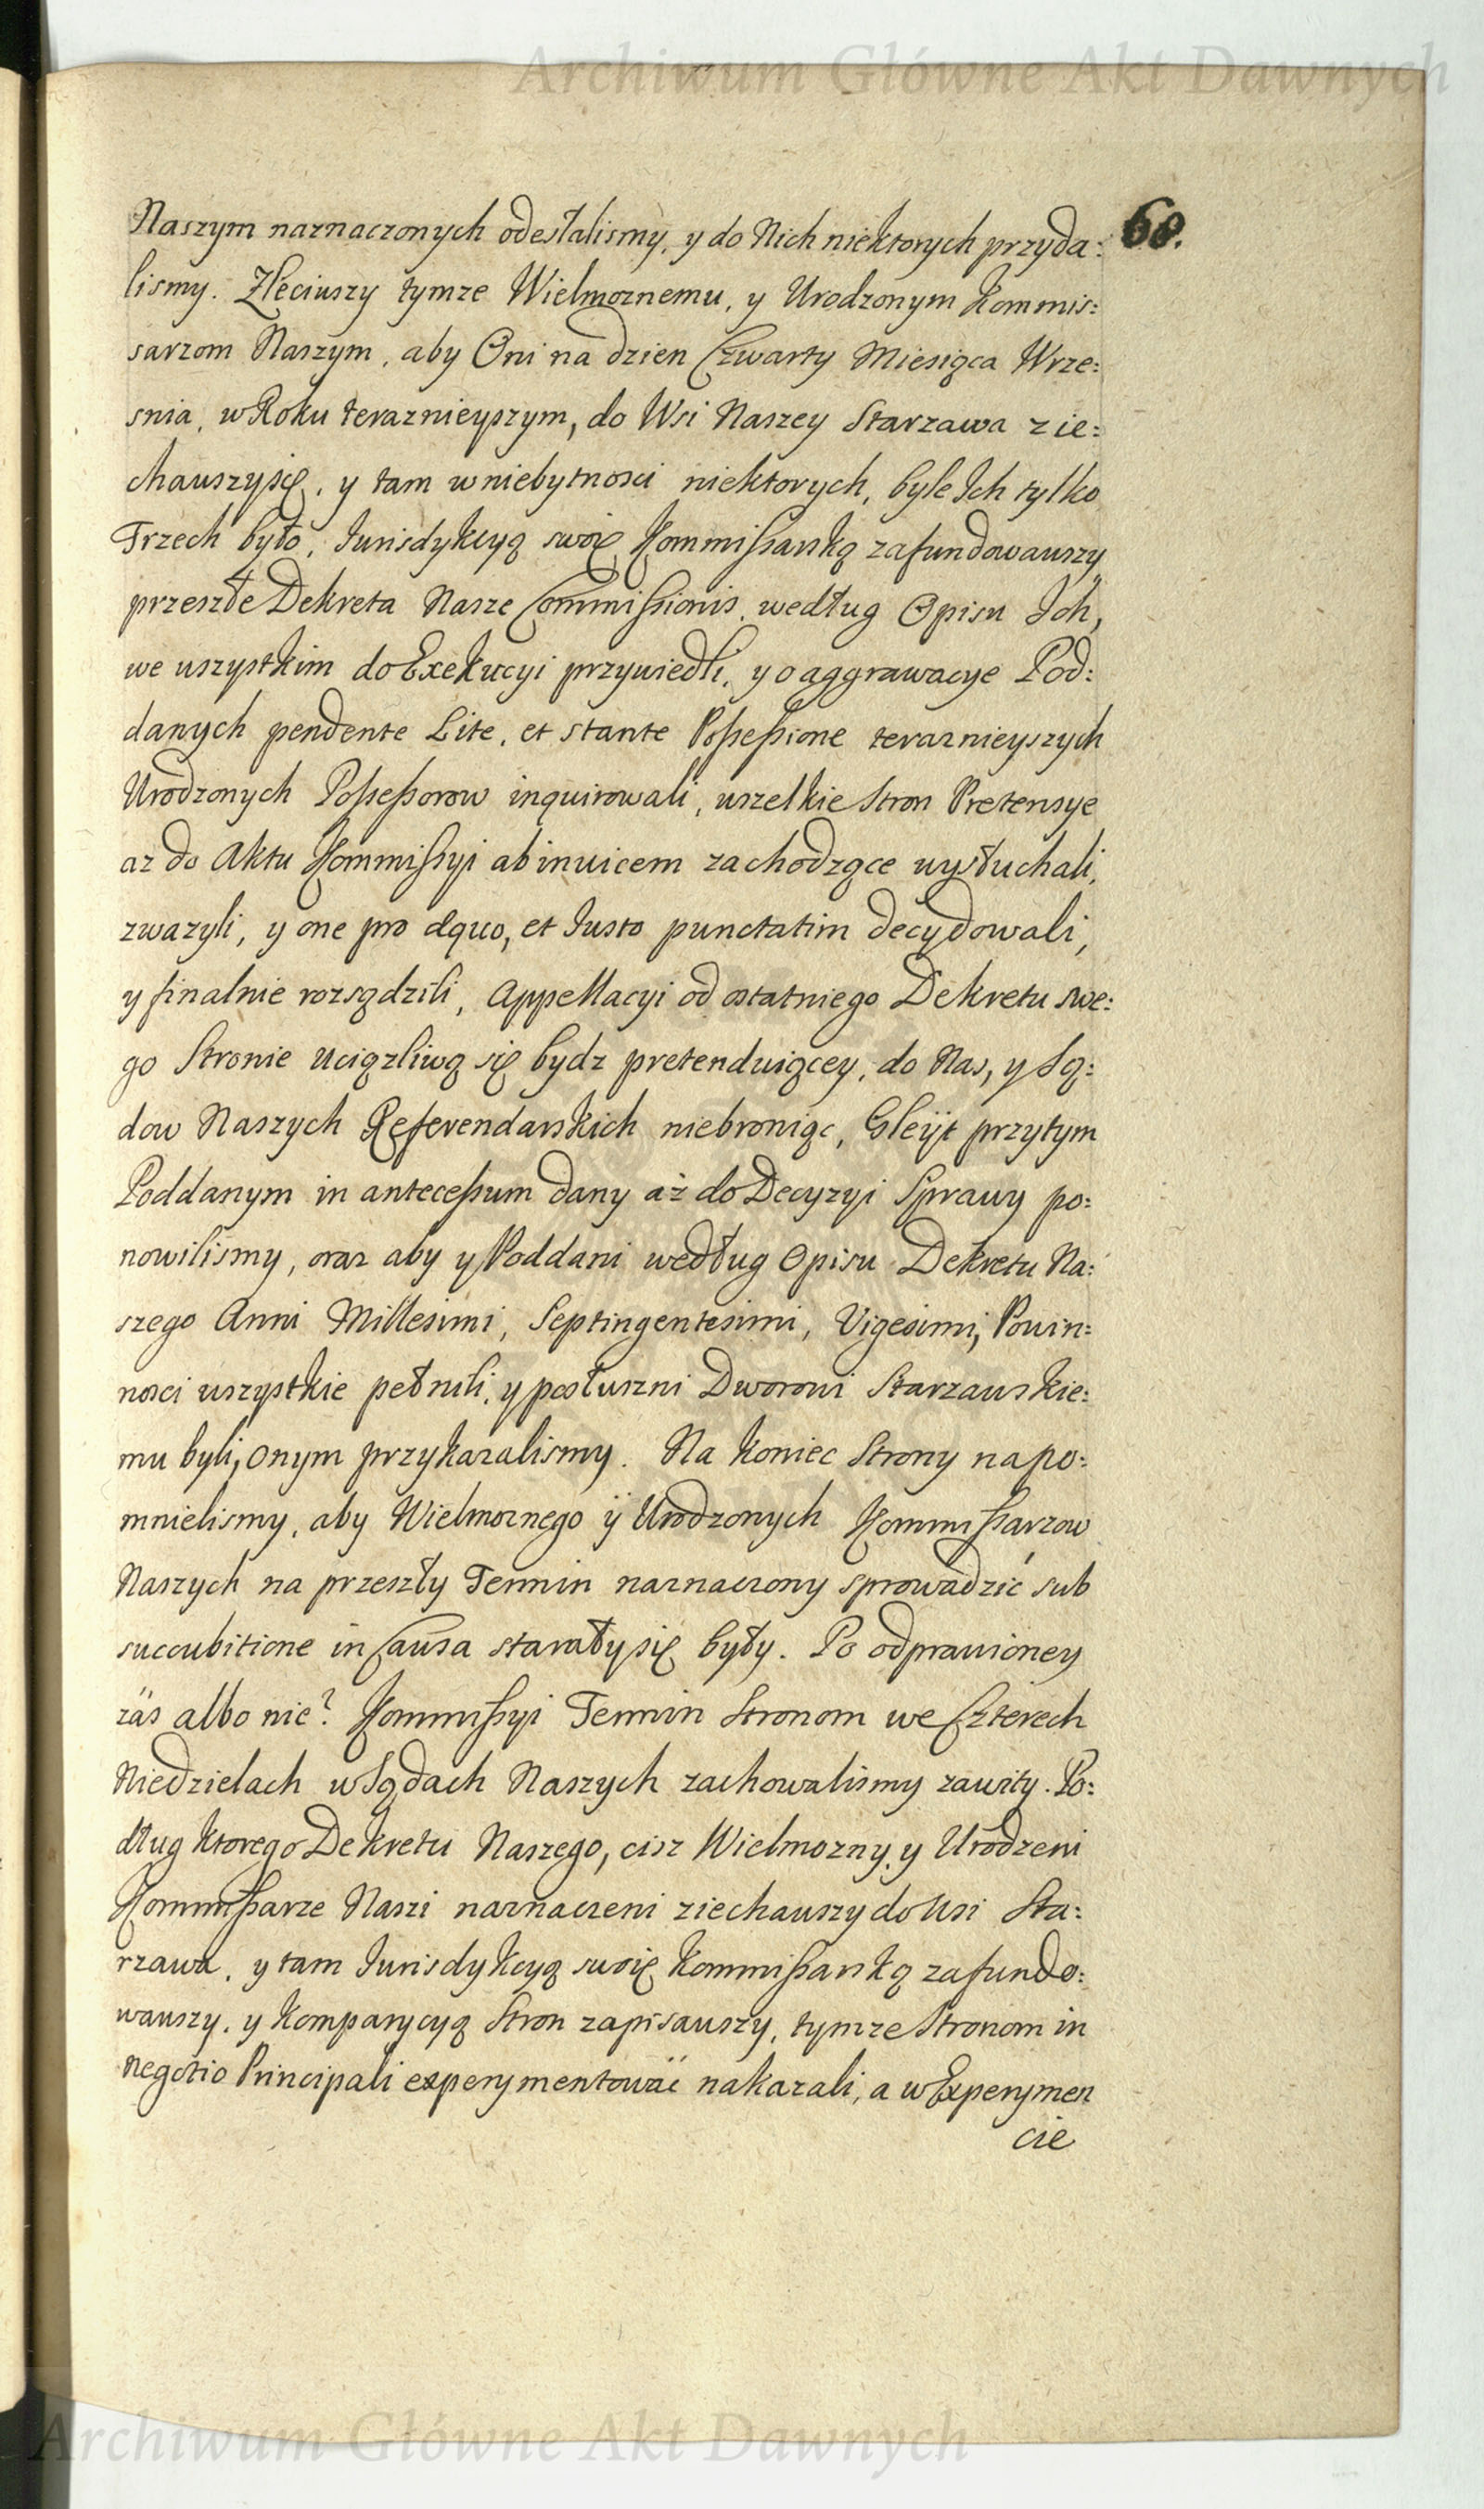 Archiwum Główne Akt Dawnych
Naszym naznaczonych odesłalismy, y do Nich niektorych przyda:
60.
lismy. Zleciuszy tymze Wielmoznemu, y Urodzonym Kommis:
sarzom Naszym, aby Oni na dzien Czwarty Miesiąca Wrze:
snia, w Roku teraznieyszym, do Wsi Naszey Starzawa zie:
chauszysię, y tam w niebytnosci niektorych, byle Ich tylko
Trzech było, Iurisdykcyą swoię Kommissarską zafundowauszy
przeszłe Dekreta Nasze Commissionis, według Opisu Ich,
we uszystkim do Exekucyi przywiedli, y o aggrawacye Pod:
danych pendente Lite, et stante Possessione teraznieyszych
Urodzonych Possessorow inquirowali, uszelkie Stron Pretensye
az do Aktu Kommissyi abinuicem zachodzące wysłuchali,
zwazyli, y one pro æquo, et Iusto punctatim decydowali,
y finalnie rozsądzili, Appellacyi od ostatniego Dekretu swe:
go Stronie uciązliwą się bydz pretenduiącey, do Nas, y Są:
dow Naszych Referendarskich niebroniąc, Gleÿt przytym
Poddanym in antecessum dany aż do Decyzyi Sprawy po:
nowilismy, oraz aby y Poddani według Opisu Dekretu Na:
szego Anni Millesimi, Septingentesimi, Vigesimi, Powin:
nosci uszystkie pełnili, y posłuszni Dworowi Starzauskie:
mu byli, onym przykazalismy. Na koniec Strony napo:
mnielismy, aby Wielmoznego ÿ Urodzonych Kommissarzow
Naszych na przeszły Termin naznaczony sprowadzić sub
succubitione in Causa starałysię były. Po odprawioney
zäs albo nie? Kommissyi Termin Stronom we Czterech
Niedzielach w Sądach Naszych zachowalismy zawity. Po:
dług ktorego Dekretu Naszego, cisz Wielmozny, y Urodzeni
Kommissarze Naszi naznaczeni ziechauszy do Wsi Sta:
rzawa, y tam Iurisdykcyą swoię Kommissarską zafundo:
wauszy, y Komparycyą Stron zapisauszy, tymze Stronom in
negotio Principali experymentowäc nakazali, a w Experymen
cie
Archiwum Główne Akt Dawnych